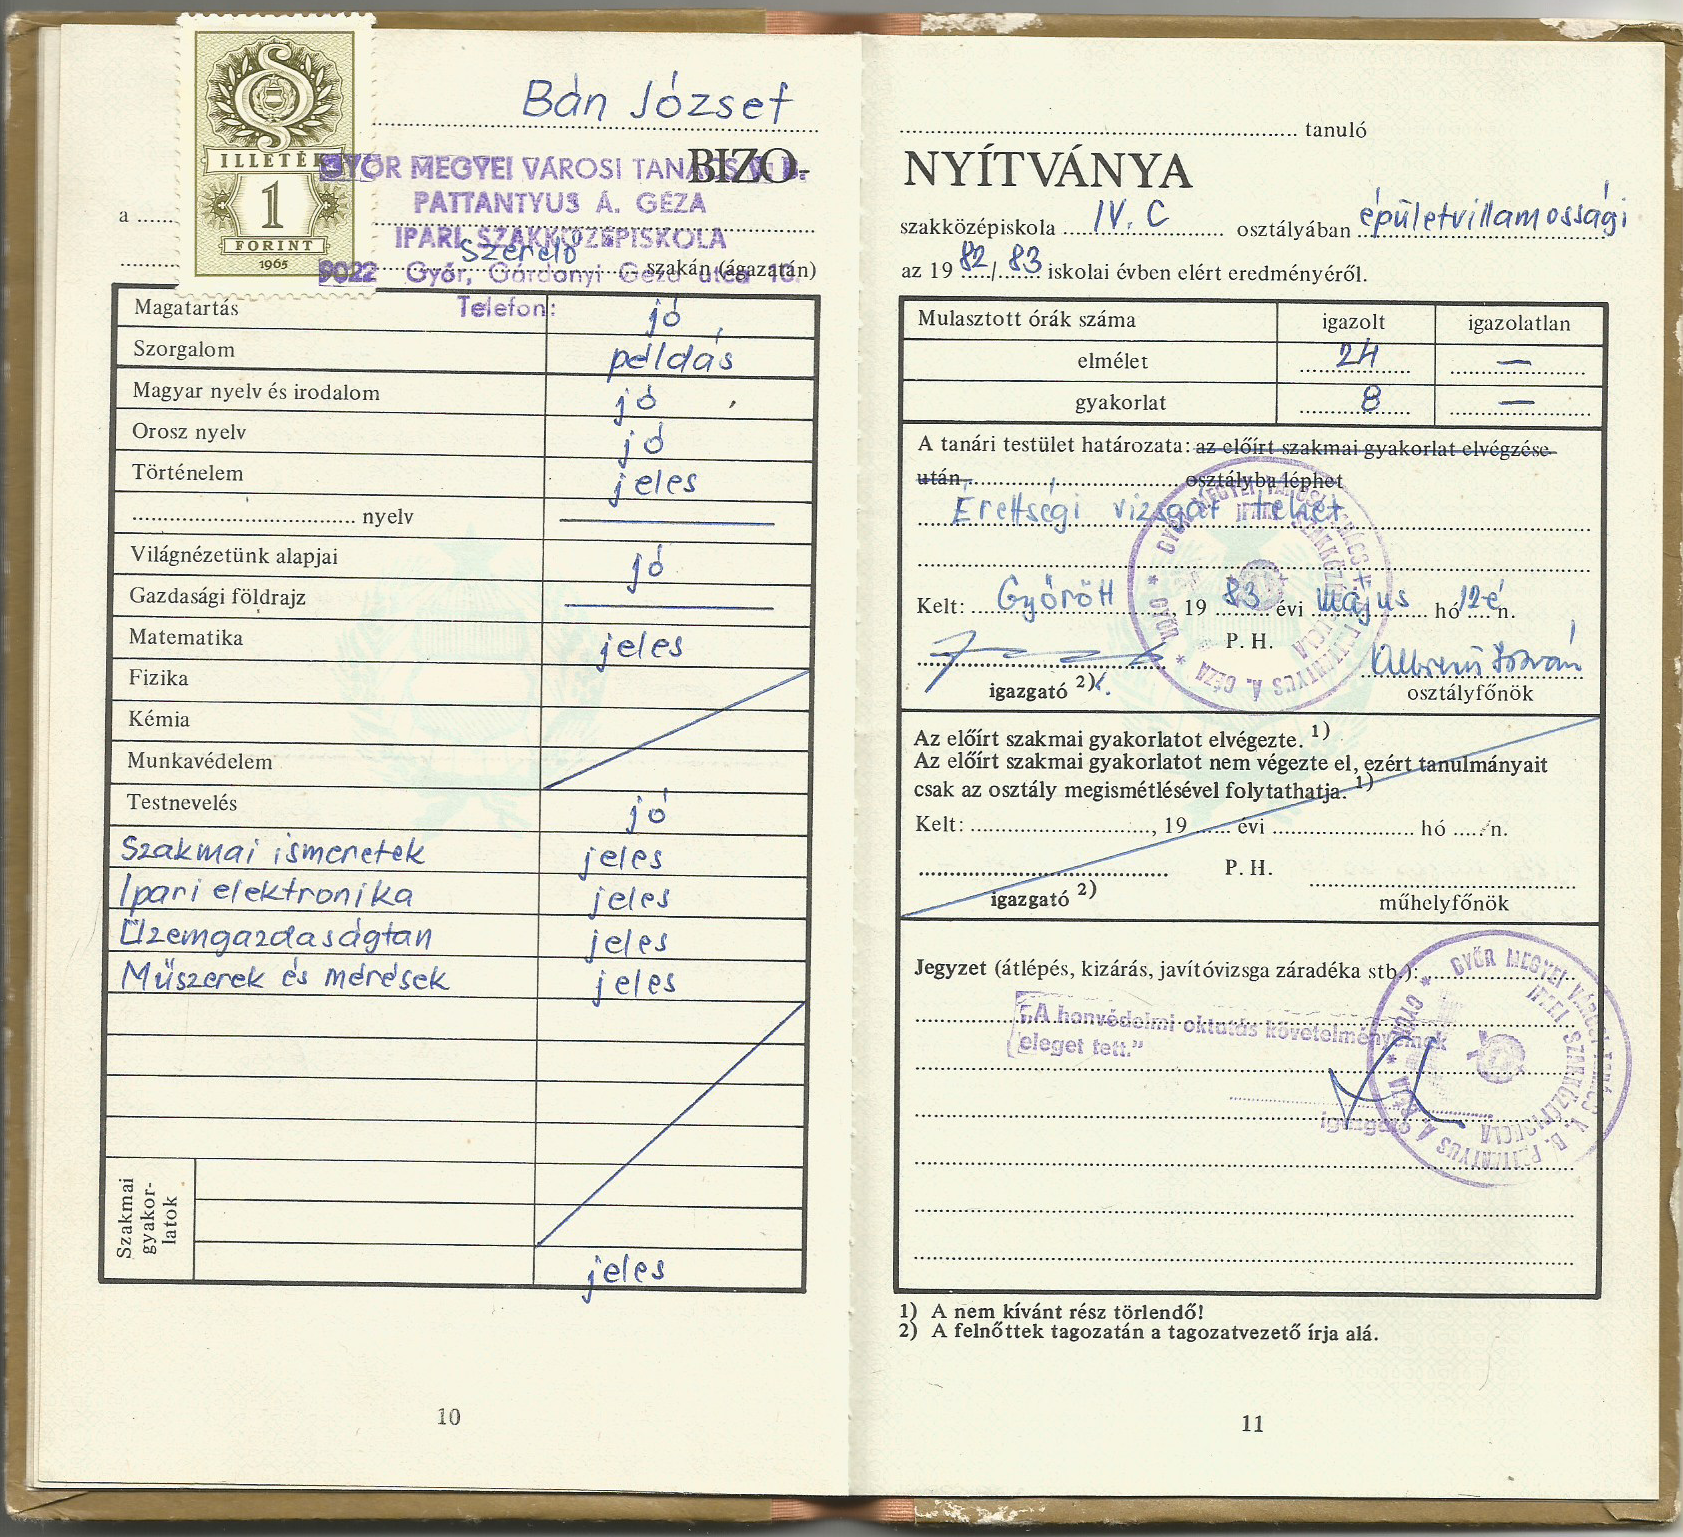 ILLETÉK
1
FORINT
1965
Bán József
GYŐR MEGYEI VÁROSI TANÁCS V. B.
BIZO-
PATTANTYUS Á. GÉZA
a
IPARI SZAKKÖZÉPISKOLA
szerelő szakán (ágazatán)
9022 Győr, Gárdonyi Géza utca
Telefon:
Magatartás jó
Szorgalom példás
Magyar nyelv és irodalom jó
Orosz nyelv jó
Történelem jeles
nyelv
Világnézetünk alapjai jó
Gazdasági földrajz
Matematika jeles
Fizika
Kémia
Munkavédelem
Testnevelés jó
Szakmai ismeretek jeles
Ipari elektronika jeles
Üzemgazdaságtan jeles
Műszerek és mérések jeles
Szakmai gyakor-latok jeles
10
tanuló
NYÍTVÁNYA
szakközépiskola IV. C osztályában épületvillamossági
az 19 82 / 83 iskolai évben elért eredményéről.
Mulasztott órák száma igazolt igazolatlan
elmélet 24 —
gyakorlat 8 —
A tanári testület határozata: az előírt szakmai gyakorlat elvégzése
után, osztályba léphet
Érettségi vizsgát tehet
Kelt: Győrött 19 83 évi május hó 12-é n.
P. H.
István
igazgató 2) osztályfőnök
GYŐR MEGYEI VÁROSI TANÁCS V. B. PATTANTYUS Á. GÉZA * GYŐR *
IPARI SZAKKÖZÉPISKOLA
Az előírt szakmai gyakorlatot elvégezte. 1)
Az előírt szakmai gyakorlatot nem végezte el, ezért tanulmányait
csak az osztály megismétlésével folytathatja. 1)
Kelt: , 19 évi hó n.
P. H.
igazgató 2) műhelyfőnök
Jegyzet (átlépés, kizárás, javítóvizsga záradéka stb.):
„A honvédelmi oktatás követelményeinek
eleget tett.”
igazgató
GYŐR MEGYEI VÁROSI TANÁCS V. B. PATTANTYUS Á. GÉZA * GYŐR *
IPARI SZAKKÖZÉPISKOLA
1) A nem kívánt rész törlendő!
2) A felnőttek tagozatán a tagozatvezető írja alá.
11